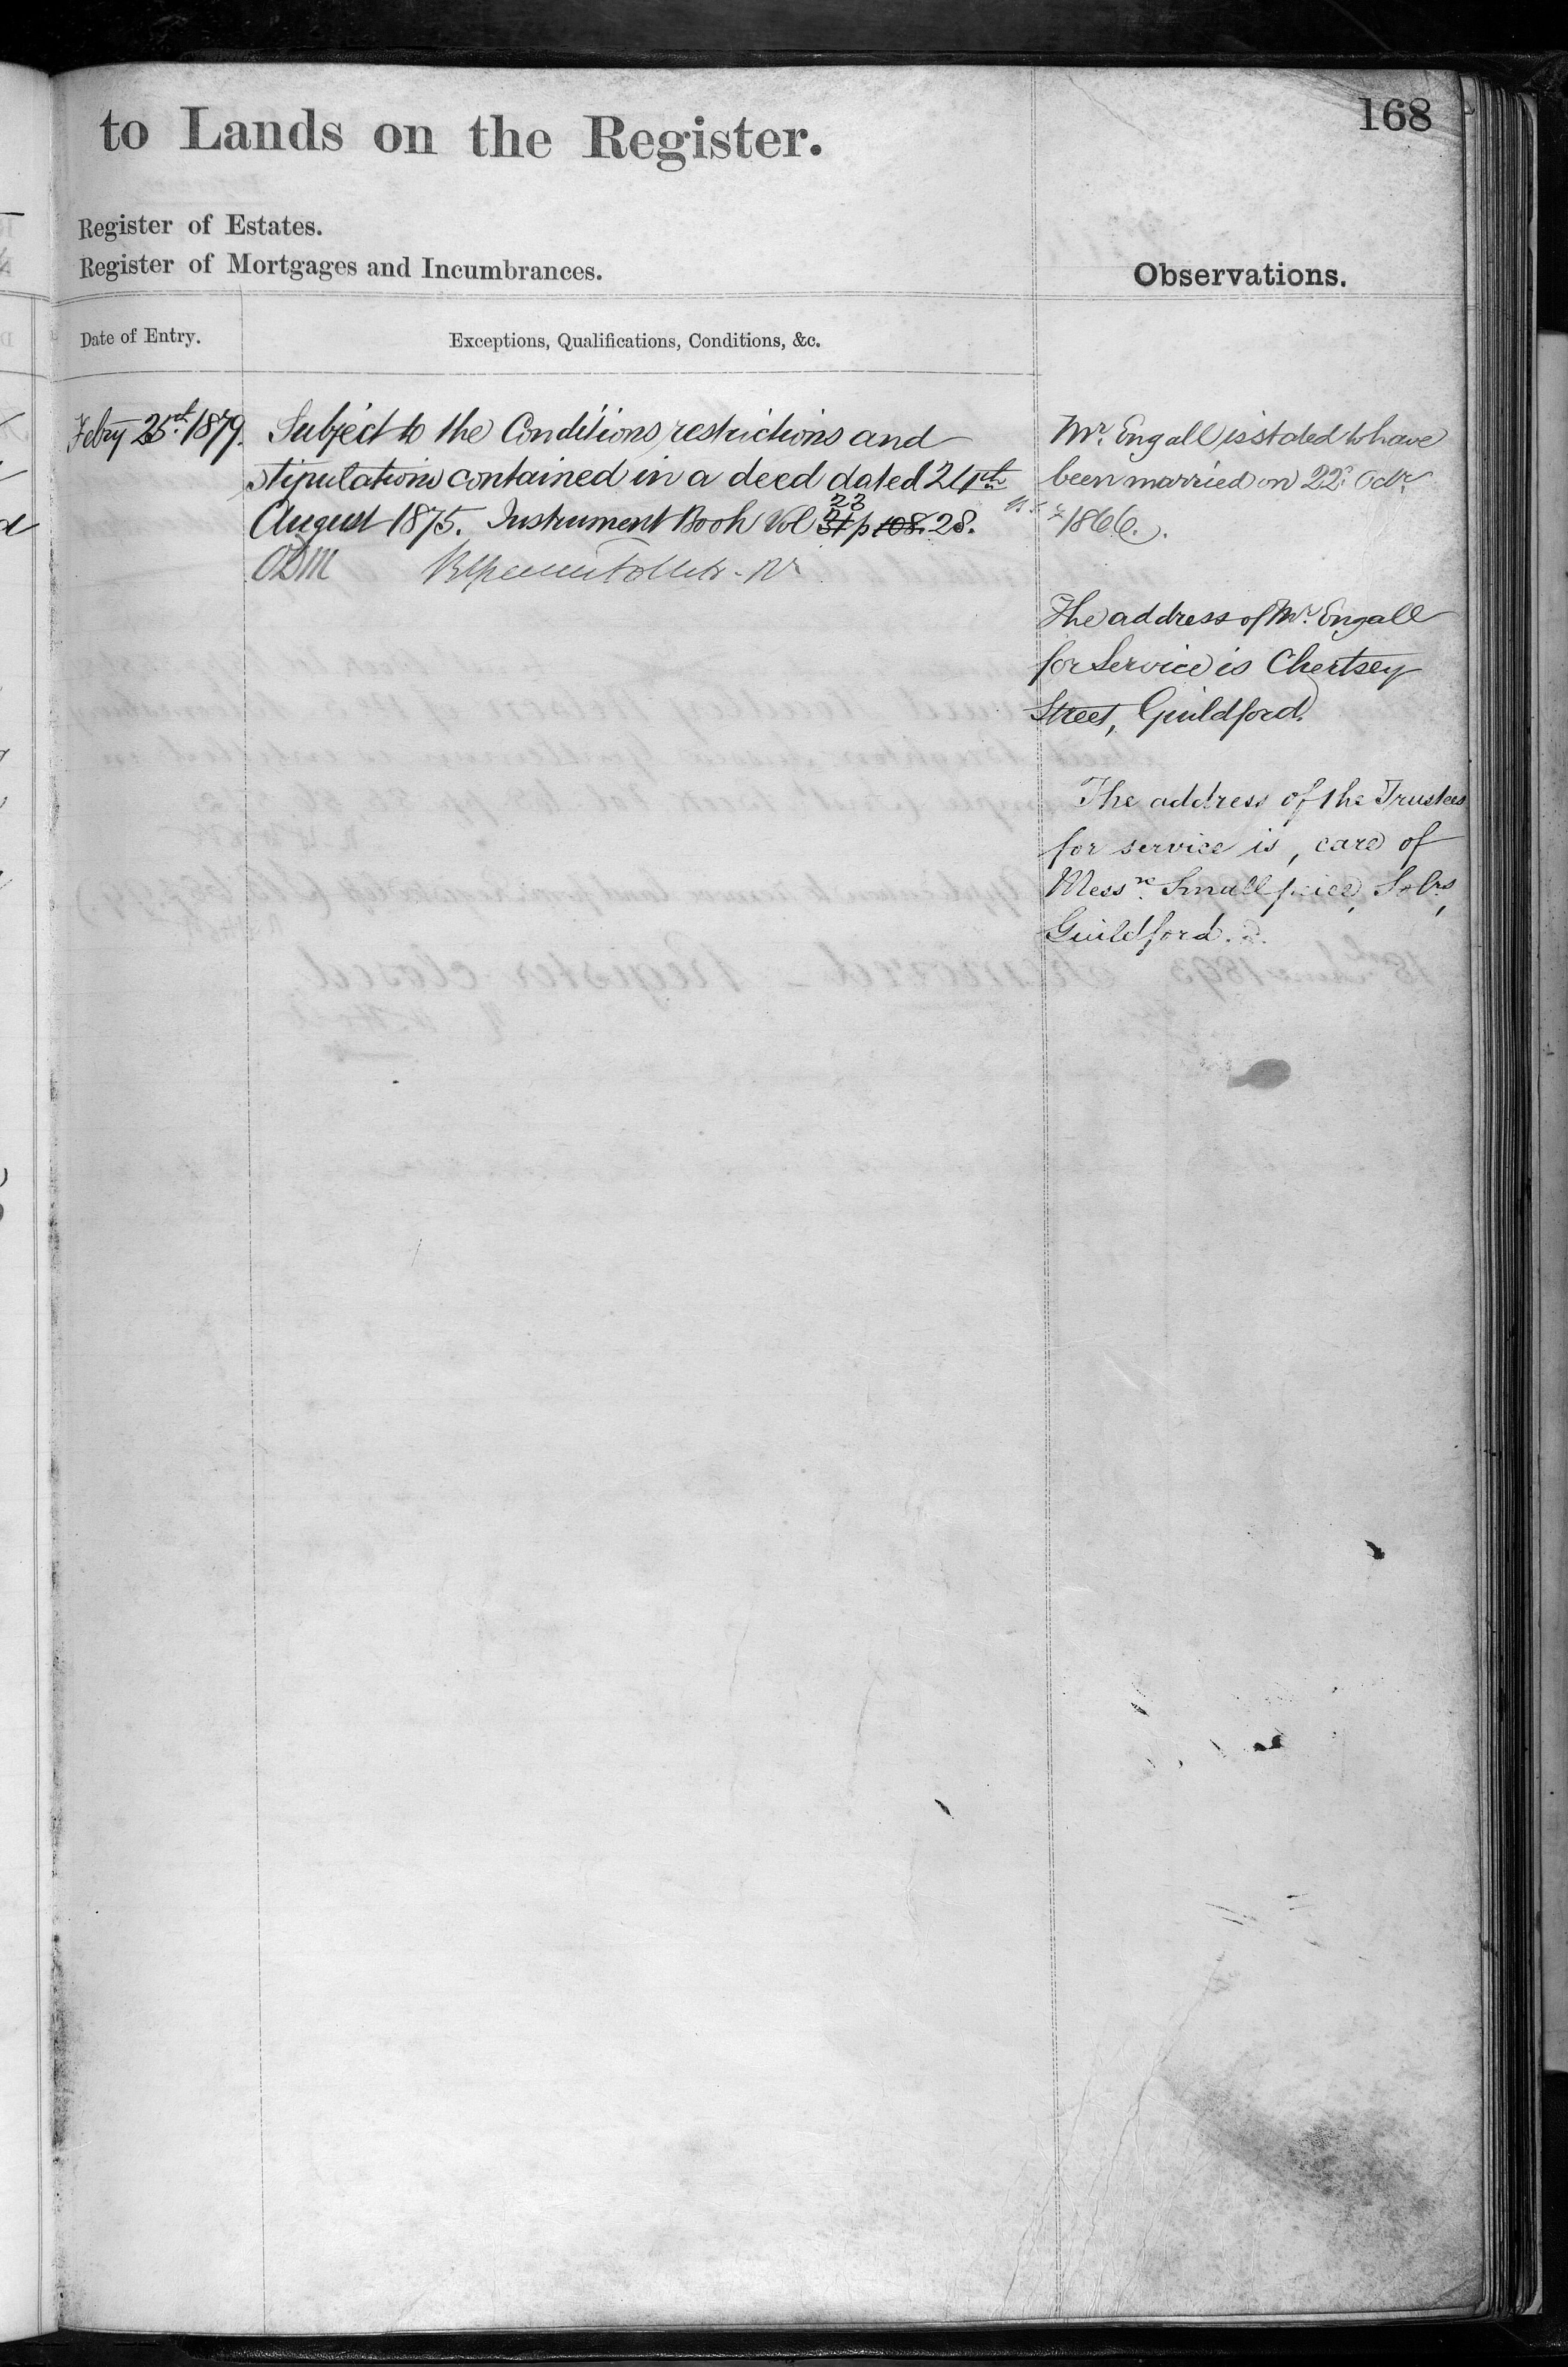 168
to Lands on the Register.
Register of Estates.
Register of Mortgages and Incumbrances.
Observations.
Date of Entry.
Exceptions, Qualifications, Conditions, &c.
Febry 25th 1879.
Subject to the Conditions restrictions and
stipulations contained in a deed dated 24th
August 1875. Instrument Book Vol 31 23 p 108. 28.
ODM
Mr. Engall is stated to have
been married on 22d Octr
1866.
The address of Mr. Engall
for Service is Chertsey
Street, Guildford.
The address of the Trustees
for service is, care of
Messrs. Smallpiece, Solrs,
Guildford.